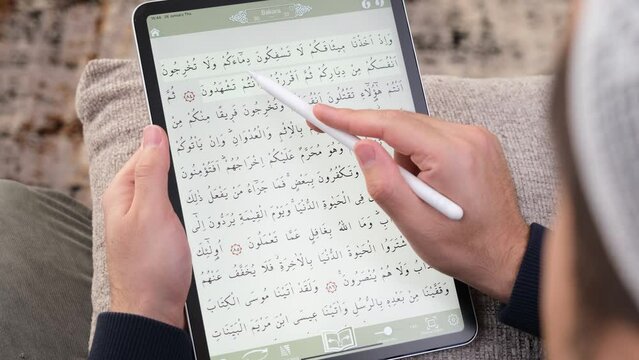 15:44 26 January Thu.
Bakara
وَاِذْ اَخَذْنَا مِيثَاقَكُمْ لَا تَسْفِكُونَ دِمَٓاءَكُمْ وَلَا تُخْرِجُونَ
اَنْفُسَكُمْ مِنْ دِيَارِكُمْ ثُمَّ تَشْهَدُونَ ﴿٨٤﴾ ثُمَّ
اَنْتُمْ هٰٓؤُ۬لَٓاءِ تَقْتُلُونَ وَتُخْرِجُونَ فَرِيقًا مِنْكُمْ مِنْ
بِالْاِثْمِ وَالْعُدْوَانِ وَاِنْ يَأْتُوكُمْ
وَهُوَ مُحَرَّمٌ عَلَيْكُمْ اِخْرَاجُهُمْ اَفَتُؤْمِنُونَ
وَتَكْفُرُونَ بِبَعْضٍ فَمَا جَزَٓاءُ مَنْ يَفْعَلُ ذٰلِكَ
فِي الْحَيٰوةِ الدُّنْيَا وَيَوْمَ الْقِيٰمَةِ يُرَدُّونَ اِلٰٓى
وَمَا اللّٰهُ بِغَافِلٍ عَمَّا تَعْمَلُونَ ﴿٨٥﴾ اُو۬لٰٓئِكَ
اشْتَرَوُا الْحَيٰوةَ الدُّنْيَا بِالْاٰخِرَةِ فَلَا يُخَفَّفُ عَنْهُمُ
وَلَا هُمْ يُنْصَرُونَ ﴿٨٦﴾ وَلَقَدْ اٰتَيْنَا مُوسَى الْكِتَابَ
وَقَفَّيْنَا مِنْ بَعْدِهِ بِالرُّسُلِ وَاٰتَيْنَا عِيسَى ابْنَ مَرْيَمَ الْبَيِّنَاتِ